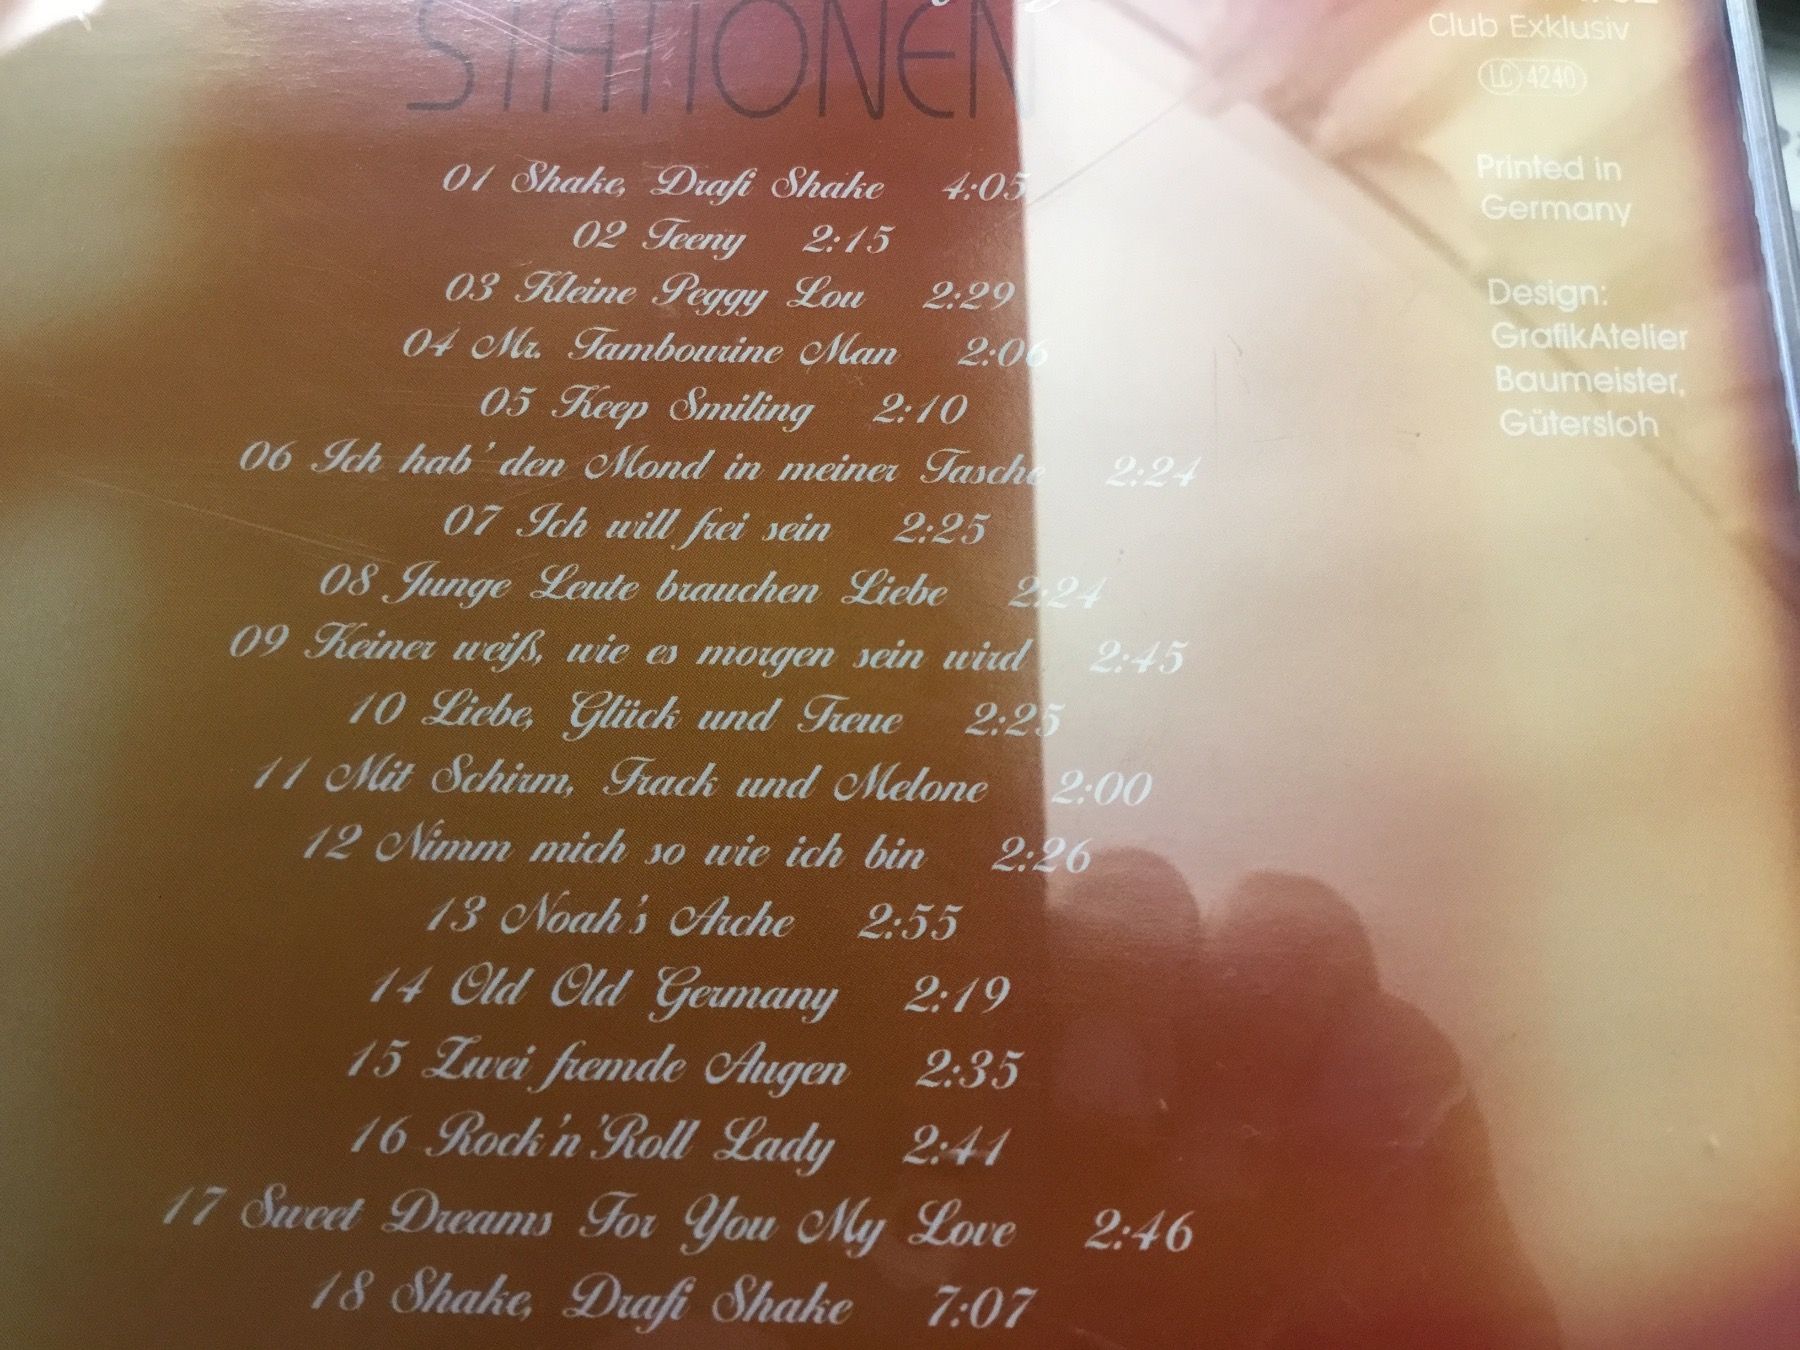 STATIONEN
01 Shake, Drafi Shake 4:05
02 Teeny 2:15
03 Kleine Peggy Lou 2:29
04 Mr. Tambourine Man 2:06
05 Keep Smiling 2:10
06 Ich hab' den Mond in meiner Tasche 2:24
07 Ich will frei sein 2:25
08 Junge Leute brauchen Liebe 2:24
09 Keiner weiß, wie es morgen sein wird 2:45
10 Liebe, Glück und Treue 2:25
11 Mit Schirm, Frack und Melone 2:00
12 Nimm mich so wie ich bin 2:26
13 Noah's Arche 2:55
14 Old Old Germany 2:19
15 Zwei fremde Augen 2:35
16 Rock'n'Roll Lady 2:41
17 Sweet Dreams For You My Love 2:46
18 Shake, Drafi Shake 7:07
Club Exklusiv
LC 4240
Printed in
Germany
Design:
GrafikAtelier
Baumeister,
Gütersloh